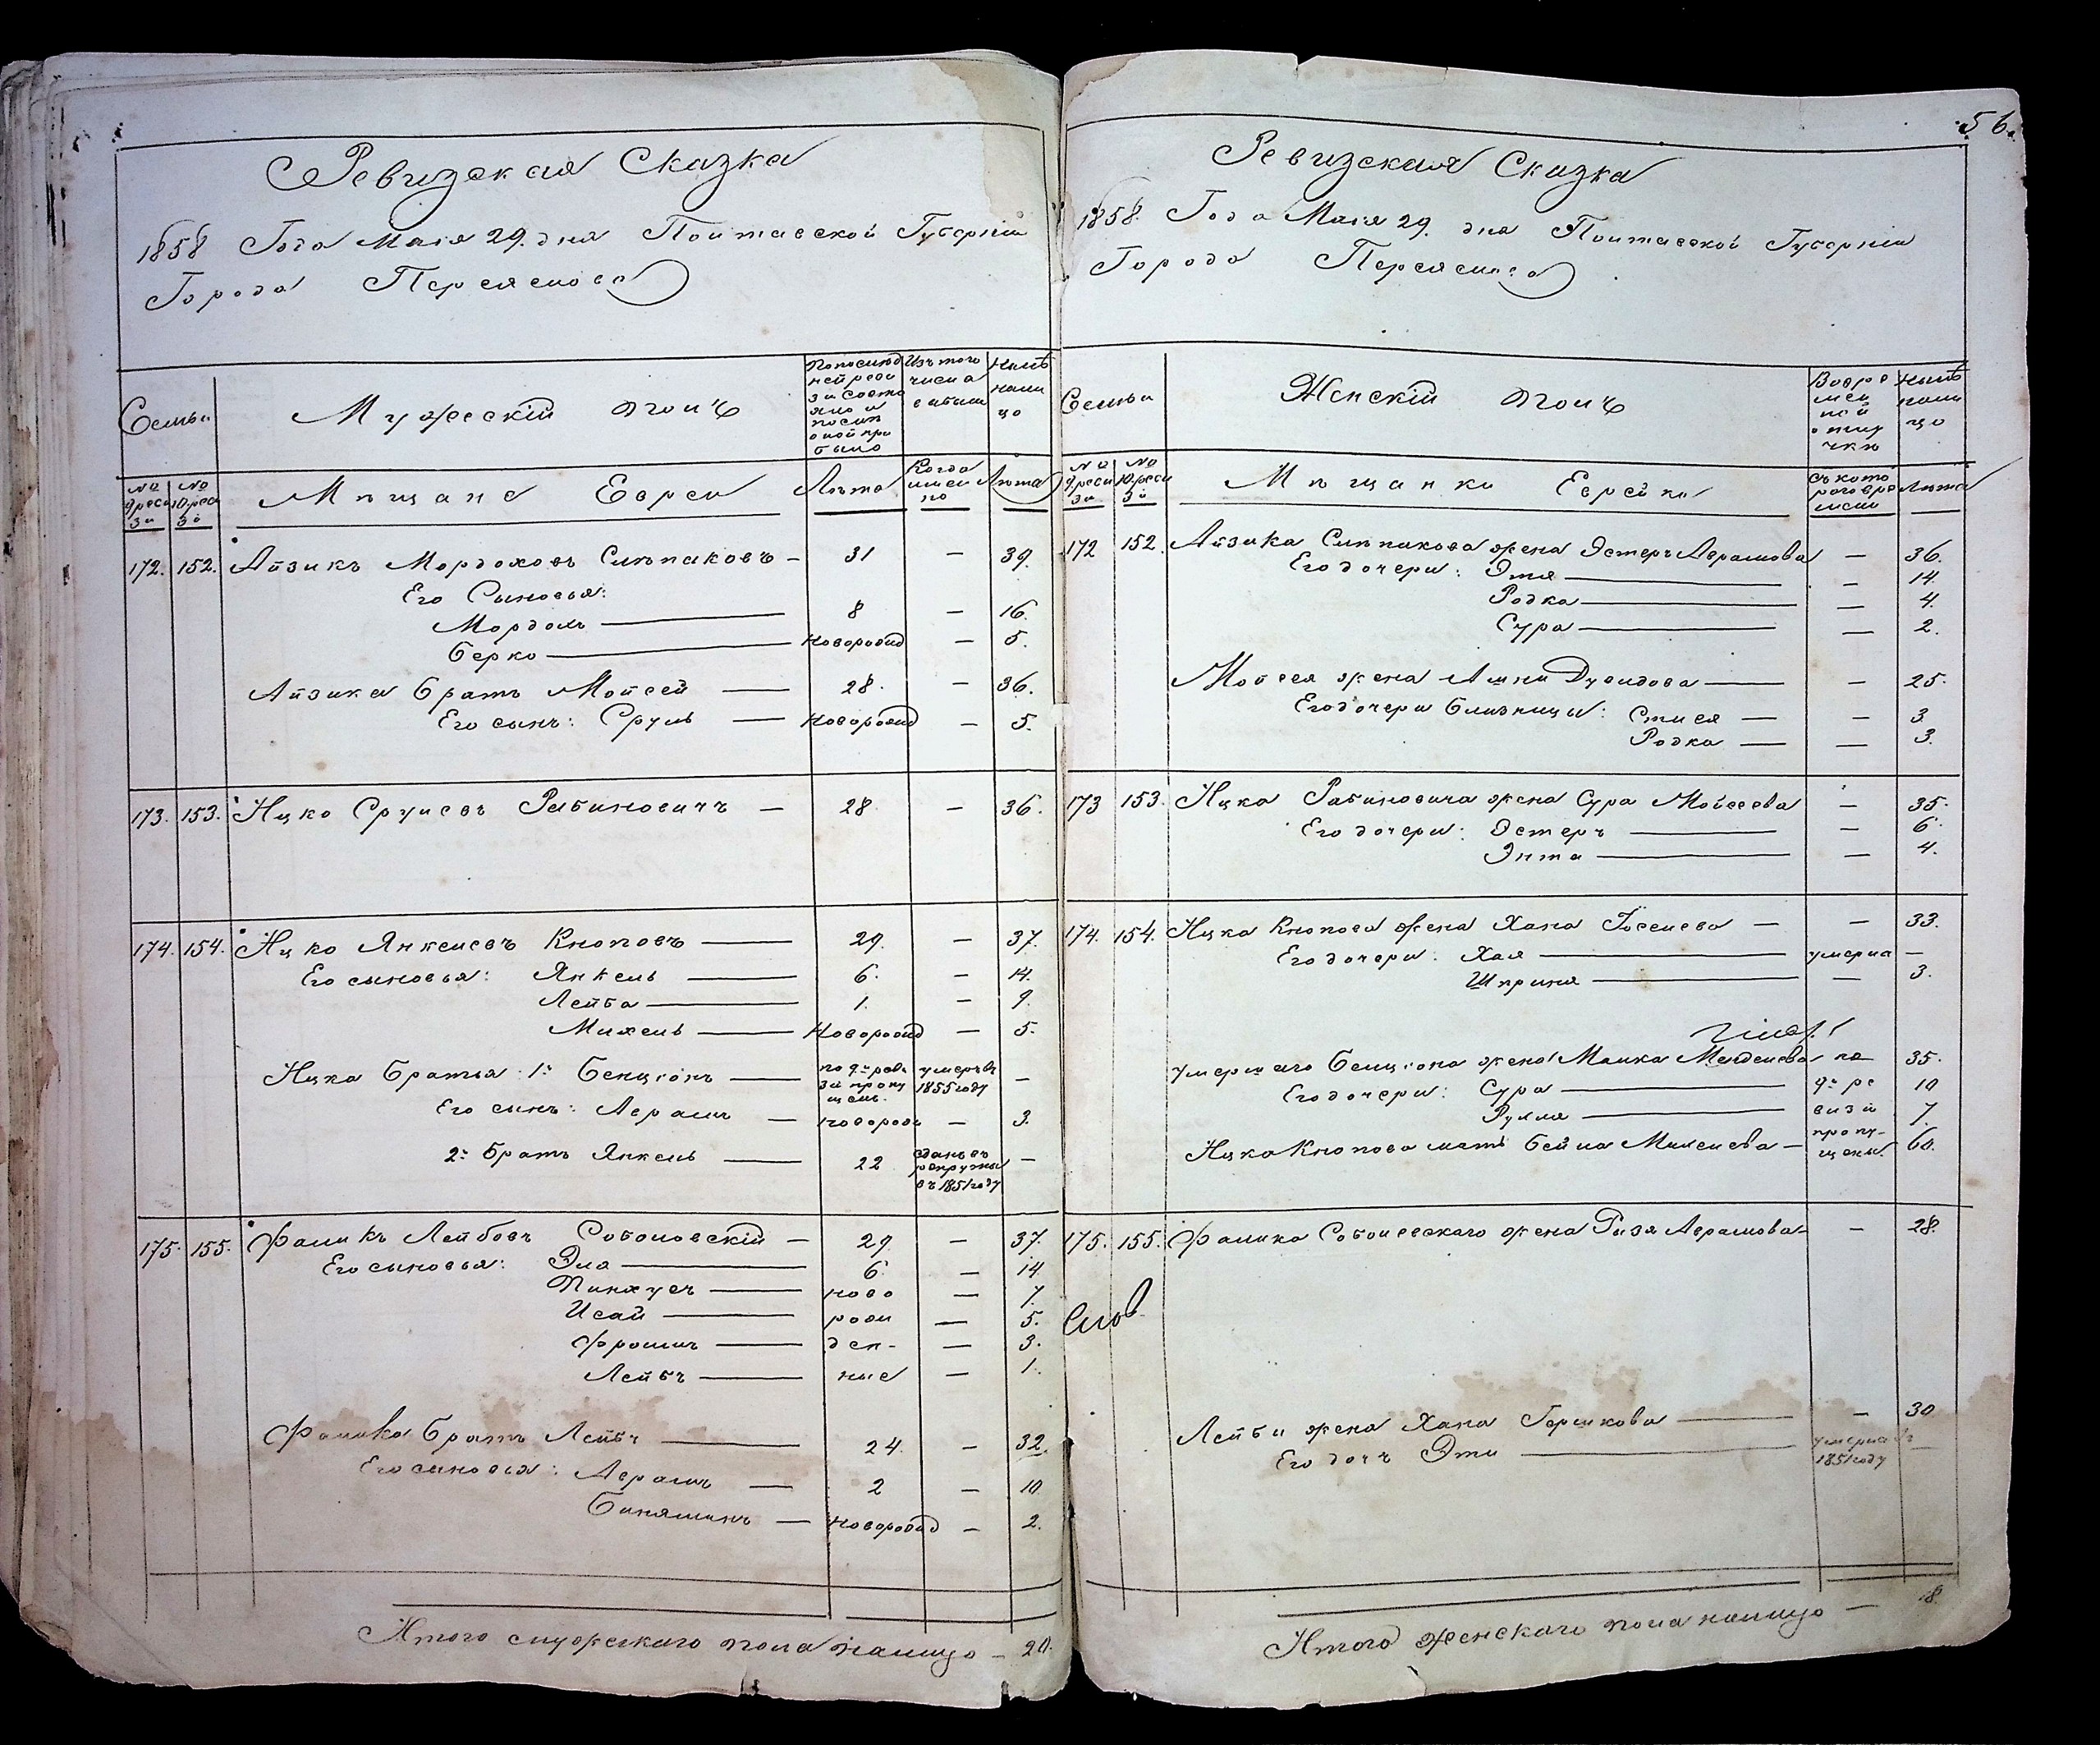 Ревизская Сказка
1858 Года Маія 29. дня Полтавской Губерніи
Города Переяслова
Семьи
Мужескій полъ
По послѣд
ней реви
зіи состо
яло и
послѣ
оной при
было
Изъ того
числа
выбыли
Нынѣ
нали
цо
№
9 реви
зіи
№
10 реви
зіи
Мѣщане Евреи
Лѣта
Когда
имен
но
Лѣта
172. 152. Айзикъ Мордоховъ Слѣпаковъ — 31 — 39.
Его Сыновья:
Мордохъ — 8 — 16.
Берко — новорожд — 5.
Айзика братъ Мойсей — 28. — 36.
Его сынъ: Сруль — новорожд — 5.
173. 153. Ицко Срулевъ Рабиновичъ — 28. — 36.
174. 154. Ицко Янкелевъ Кноповъ — 29. — 37.
Его сыновья: Янкель — 6. — 14.
Лейба — 1. — 9.
Михель — новорожд — 5.
Ицка братья: 1й Бенціонъ — по 9й реви
зіи пропу
щенъ. умеръ въ
1855 году —
Его сынъ: Аврамъ — новорожд — 3.
2й братъ Янкель — 22 сданъ въ
рекруты
въ 1851 году —
175. 155. Фаликъ Лейбовъ Соболовскій — 29. — 37.
Его сыновья: Эла — 6. — 14.
Пинхусъ — ново — 7.
Исай — рож — 5.
Фроимъ — ден- — 3.
Лейбъ — ные — 1.
Фалика братъ Лейбъ — 24. — 32.
Его сыновья: Аврамъ — 2 — 10.
Биняминъ — новорожд — 2.
Итого мужескаго пола налицо — 20.
56.
Ревизская Сказка
1858. Года Маія 29. дня Полтавской Губерніи
Города Переяслова
Семьи
Женскій полъ
Во вре
мен
ной
отлу
чкѣ
Нынѣ
нали
цо
№
9 реви
зіи
№
10 реви
зіи
Мѣщанки Еврейки
съ кото
раго вре
мени
Лѣта
172 152. Айзика Слѣпакова жена Эстеръ Абрамова — 36.
Его дочери: Этя — 14.
Родка — 4.
Сура — 2.
Мойсея жена Дувидова — 25.
Его дочери близницы: Стися — 3.
Родка — 3.
173 153. Ицка Рабиновича жена Сура Мойсеева — 35.
Его дочери: Эстеръ — 6.
Энта — 4.
174. 154. Ицка Кнопова жена Хана Іоселева — 33.
Его дочери: Хая — умерла —
Шприня — 3.
умершаго Бенціона жена Малка Менделева по 35.
Его дочери: Сура — 9й ре 10
Рухля — визіи 7.
пропу-
Ицка Кнопова мать Бейла Михелева — щены. 60.
175. 155. Фалика Соболевскаго жена Рызя Аврамова — 28.
Лейбы жена Хана Гершкова — 30
Его дочь Эти — умерла въ
1851 году —
Итого женскаго пола налицо — 18